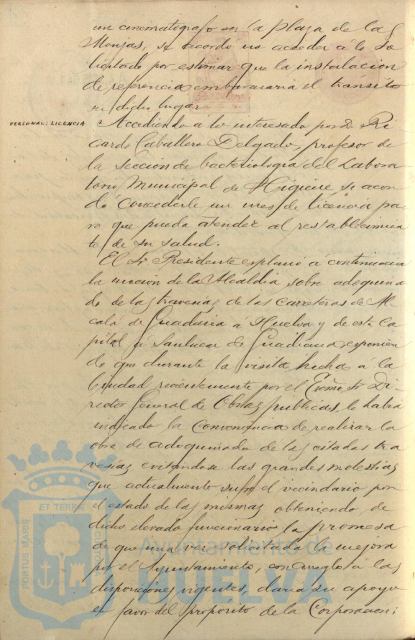 un cinematógrafo en la plaza de las
Monjas, se acordó no acceder a lo so
licitado por estimar que la instalación
de referencia embarazaria el transito
en dicho lugar.
PERSONAL: LICENCIA
Accediendo a lo interesado por D. Ri
cardo Caballero Delgado, profesor de
la sección de bacteriologia del Labora
torio Municipal de Higiene se acor
dó concederle un mes de licencia pa
ra que pueda atender al restablecimien
to de su salud.
El Sr. Presidente explanó a continuación
la moción de la Alcaldia sobre adoquina
do de las travesias de las carreteras de Al
calá de Guadaira a Huelva y de esta Ca
pital a Sanlucar de Guadiana exponien
do que durante la visita hecha a la
Ciudad recientemente por el Excmo. Sr. Di
rector General de Obras publicas, le habia
indicado la conveniencia de realizar la
obra de adoquinado de las citadas tra
vesias evitandose las grandes molestias
que actualmente sufre el vecindario por
el estado de las mismas obteniendo de
dicho elevado funcionario la promesa
de que una vez solicitada la mejora
por el Ayuntamiento, con arreglo a las
disposiciones vigentes, daria su apoyo
en favor del proposito de la Corporacion;
PORTUS MARIS
ET TERRAE
Ayuntamiento de
HUELVA